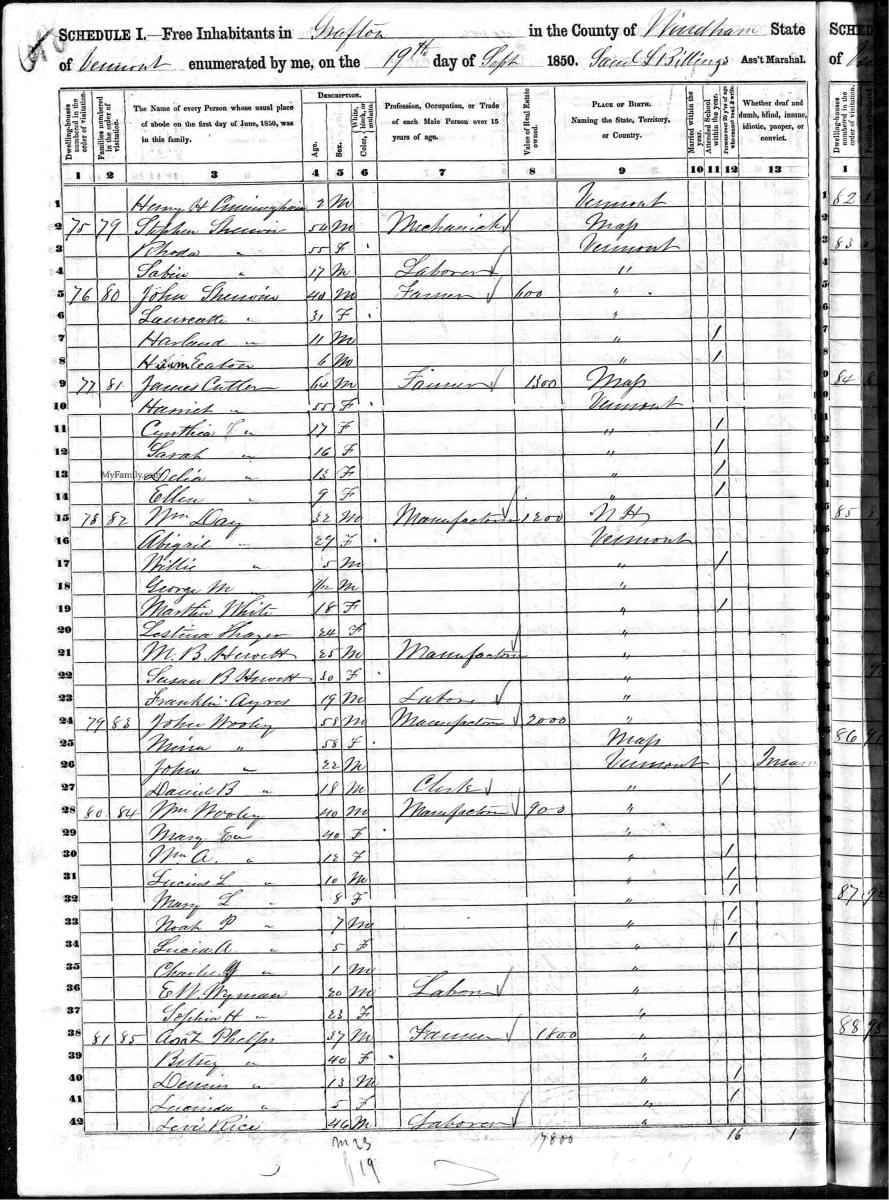 SCHEDULE I.—Free Inhabitants in Grafton in the County of Windham State
of Vermont enumerated by me, on the 19th day of Sept 1850. Saml L Billings Ass't Marshal.
Dwelling-houses numbered in the order of visitation.
Families numbered in the order of visitation.
The Name of every Person whose usual place of abode on the first day of June, 1850, was in this family.
DESCRIPTION.
Age.
Sex.
Color, White, black, or mulatto.
Profession, Occupation, or Trade of each Male Person over 15 years of age.
Value of Real Estate owned.
PLACE OF BIRTH. Naming the State, Territory, or Country.
Married within the year.
Attended School within the year.
Persons over 20 y'rs of age who cannot read & write.
Whether deaf and dumb, blind, insane, idiotic, pauper, or convict.
1 2 3 4 5 6 7 8 9 10 11 12 13
1 Henry H Cunningham 2 M Vermont
2 75 79 Stephen Sherwin 54 M Mechanick Mass
3 Rhoda " 55 F Vermont
4 Sabin " 17 M Laborer "
5 76 80 John Sherwin 40 M Farmer 600 "
6 Laurette " 31 F "
7 Harland " 11 M " 1
8 Hiram Eaton 6 M " 1
9 77 81 James Cutler 64 M Farmer 1300 Mass
10 Harriet " 55 F Vermont
11 Cynthia " 17 F " 1
12 Sarah " 16 F " 1
13 Delia " 13 F " 1
MyFamily.com
14 Ellen " 9 F " 1
15 78 82 Wm Day 32 M Manufacturer 1200 N H
16 Abigail " 29 F Vermont
17 Willie " 5 M " 1
18 George M /12 M "
19 Martha White 18 F " 1
20 Lestina Thayer 24 F "
21 M. B. Hewett 25 M Manufacturer "
22 Susan B Hewett 30 F "
23 Franklin Ayres 19 M Labore "
24 79 83 John Wooley 58 M Manufacturer 2000 "
25 " 58 F Mass
26 John " 22 M Vermont Insan
27 Daniel B " 18 M Clerk " 1
28 80 84 Wm Wooley 40 M Manufacturer 900 "
29 Mary E " 40 F "
30 Wm A. " 12 F " 1
31 Lucius L " 10 M " 1
32 Mary L " 8 F " 1
33 Noah P " 7 M " 1
34 Lucia A. " 5 F " 1
35 Charles " 1 M "
36 E W. Wyman 20 M Labore "
37 Sophia H " 23 F "
38 81 85 Phelps 37 M Farmer 1800 "
39 Betsey " 40 F "
40 Dennis " 13 M " 1
41 Lucinda " 5 F " 1
42 Levi Rice 46 M Laborer "
m 23
f 19
7800 16 1
SCHED
of
1
82
83
84
85
86 91
87
88